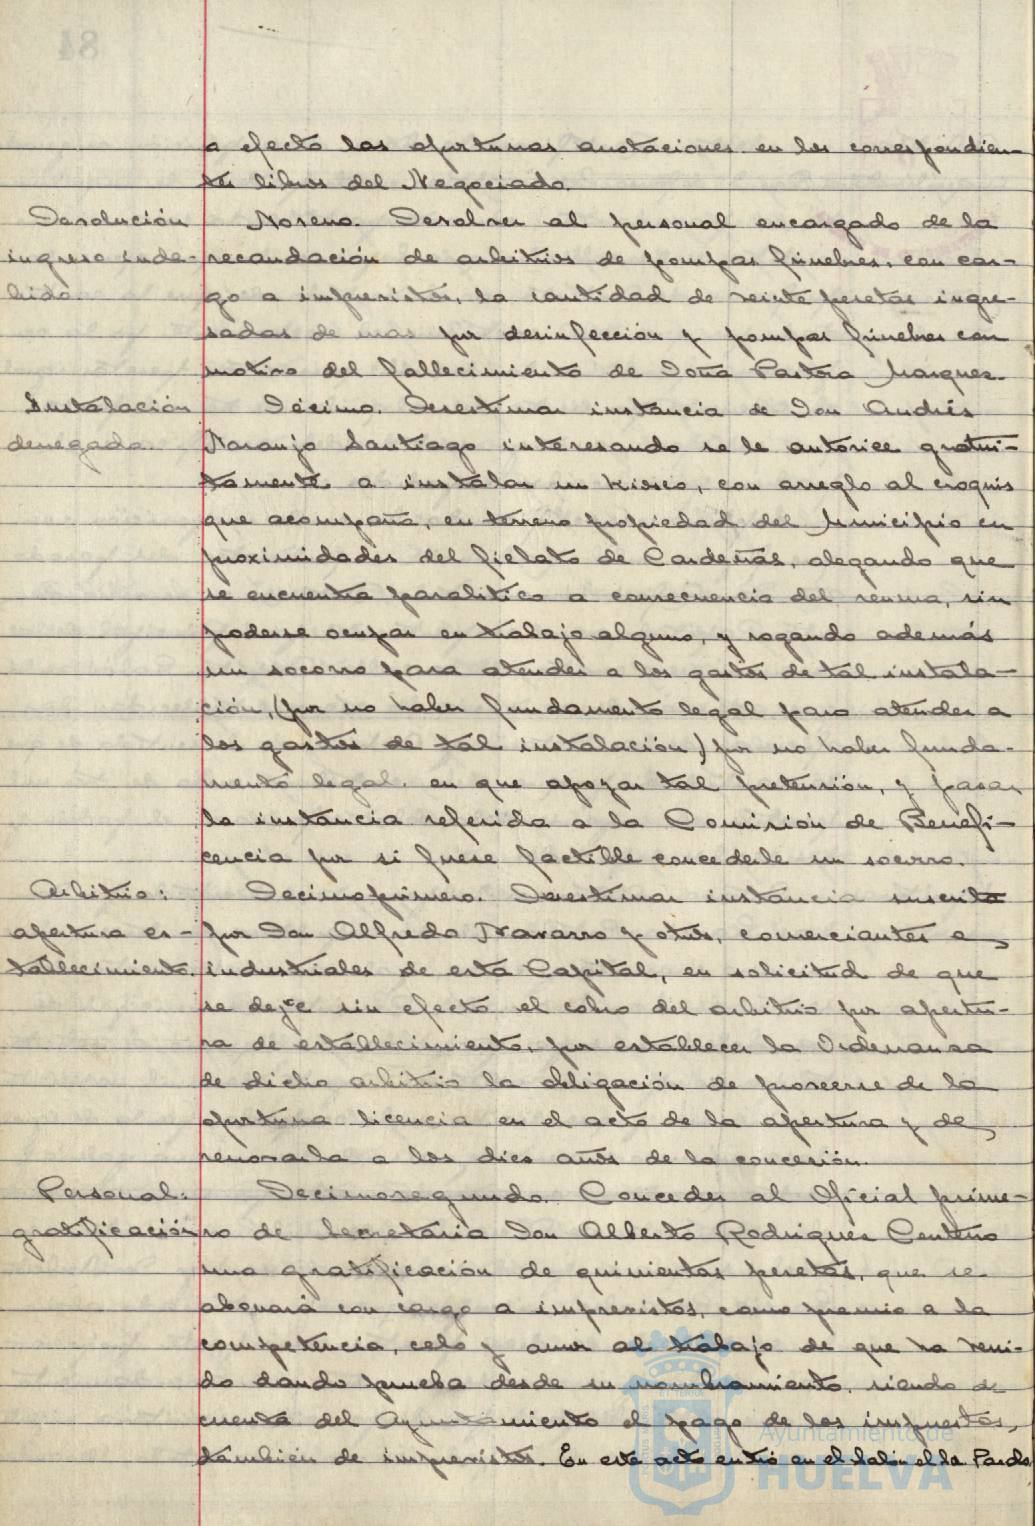 a efecto las oportunas anotaciones en los correspondien-
tes libros del Negociado.
Devolución
ingreso inde-
bido.
Noveno. Devolver al personal encargado de la
recaudación de arbitrios de pompas fúnebres, con car-
go a imprevistos, la cantidad de veinte pesetas ingre-
sadas de mas por desinfección y pompas fúnebres con
motivo del fallecimiento de Doña Pastora Marquez.
Instalación
denegada.
Décimo. Desestimar instancia de Don Andrés
Naranjo Santiago interesando se le autorice gratui-
tamente a instalar un kiosco, con arreglo al croquis
que acompaña, en terreno propiedad del Municipio en
proximidades del fielato de Cardeñas, alegando que
se encuentra paralítico a consecuencia del reuma, sin
poderse ocupar en trabajo alguno, y rogando además
un socorro para atender a los gastos de tal instala-
ción, (por no haber fundamento legal para atender a
los gastos de tal instalación) por no haber funda-
mento legal en que apoyar tal pretensión, y pasar
la instancia referida a la Comisión de Benefi-
cencia por si fuese factible concederle un socorro.
Arbitrio:
apertura es-
tablecimiento.
Decimoprimero. Desestimar instancia suscrita
por Don Alfredo Navarro y otros, comerciantes e
industriales de esta Capital, en solicitud de que
se deje sin efecto el cobro del arbitrio por apertu-
ra de establecimiento, por establecer la Ordenanza
de dicho arbitrio la obligación de proveerse de la
oportuna licencia en el acto de la apertura y de
renovarla a los diez años de la concesión.
Personal:
gratificación
Decimosegundo. Conceder al Oficial prime-
ro de Secretaría Don Alberto Rodriguez Centeno
una gratificación de quinientas pesetas, que se
abonará con cargo a imprevistos, como premio a la
competencia, celo y amor al trabajo de que ha veni-
do dando prueba desde su nombramiento, siendo de
cuenta del Ayuntamiento el pago de los impuestos,
también de imprevistos. En este acto entró en el Salón el Sr. Pardo
Ayuntamiento de
HUELVA
84